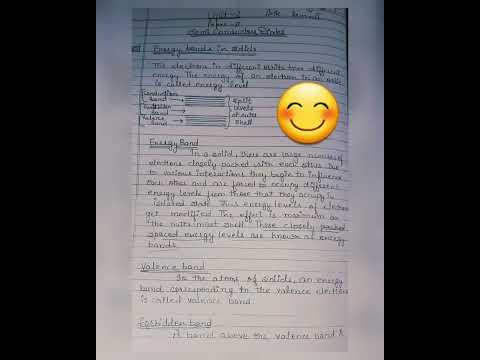 Unit-
Semi Conductors Diodes
Energy bands in solids
The electrons in different orbits have different
energy. The energy of an electron in an orbit
is called energy level
Conduction
band
Split
levels
of outer
shell
Valence
band
Energy Band
In a solid, there are large number of
electrons closely packed with each other. Due
to various interactions they begin to influence
each other and are forced to occupy different
energy levels from those that they occupy in
isolated state. Thus energy levels of electron
get modified. The effect is maximum on
the outer most shell. These closely packed
spaced energy levels are known as energy
bands.
Valence band
In the atoms of solids, an energy
band corresponding to the valence electrons
is called valence band.
Forbidden band
A band above the valence band &